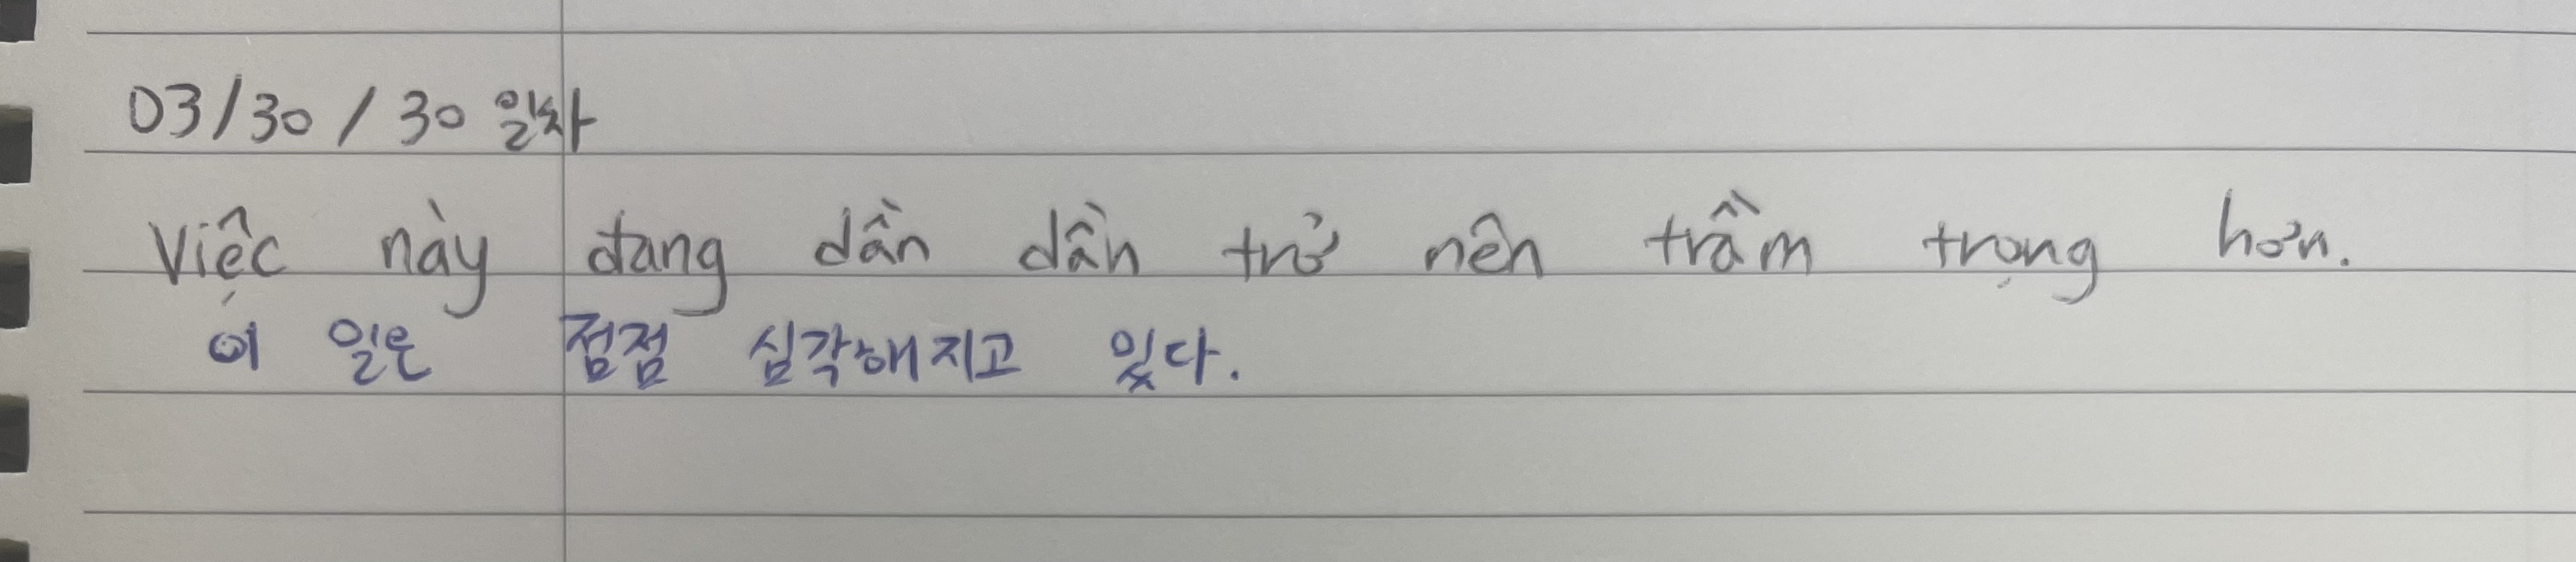 03/30/30 일차
Việc này đang dần dần trở nên trầm trọng hơn.
이 일은 점점 심각해지고 있다.